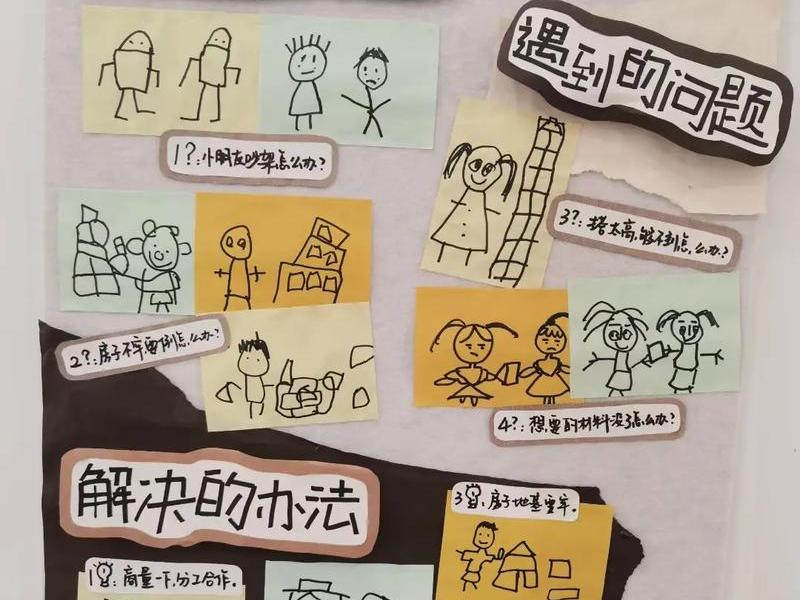 遇到的问题
1?:小朋友吵架怎么办?
3?:塔太高,够不到怎么办?
2?:房子不牢要倒怎么办?
4?:想要的材料没了怎么办?
解决的办法
3:房子地基要牢。
1:商量一下,分工合作。